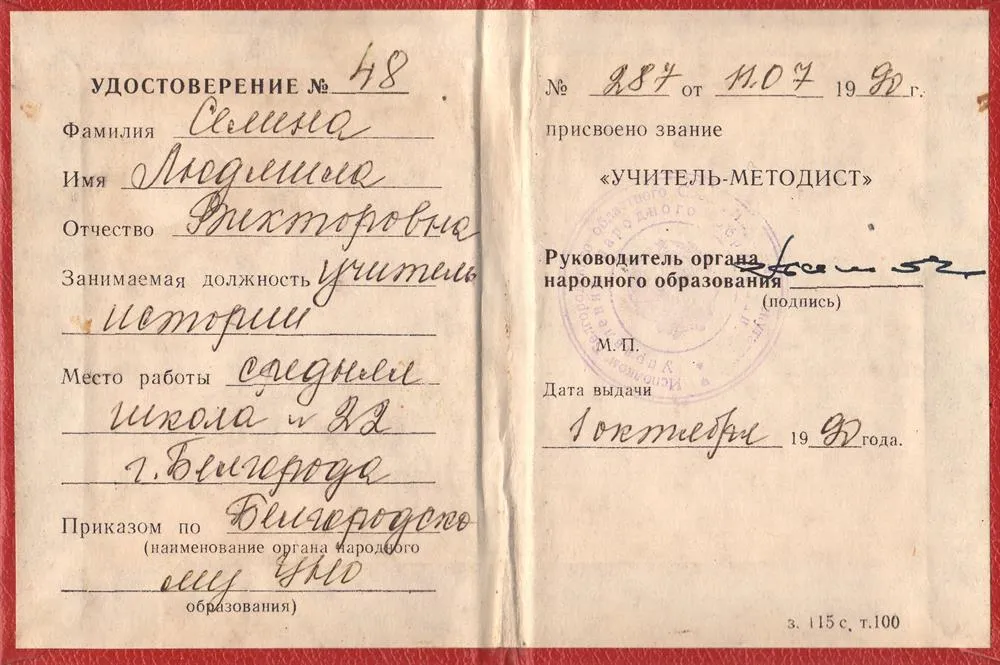 УДОСТОВЕРЕНИЕ № 48
Фамилия Семина
Имя Людмила
Отчество Викторовна
Занимаемая должность учитель
истории
Место работы средняя
школа № 22
г. Белгорода
Приказом по Белгородско
(наименование органа народного
му УНО
образования)
№ 287 от 11.07 1990 г.
присвоено звание
«УЧИТЕЛЬ-МЕТОДИСТ»
Руководитель органа
народного образования
(подпись)
М. П.
Дата выдачи
1 октября 1990 года.
з. 115 с, т. 100